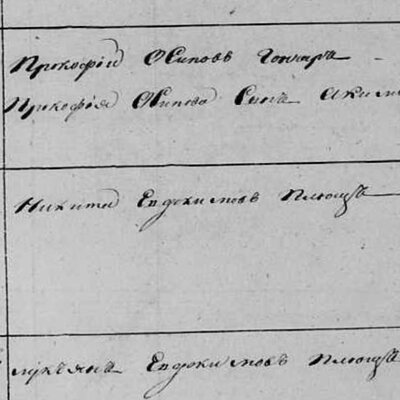 Прокофий Осиповъ Гончаръ
Прокофія Осипова Сынъ Акимъ
Никита Евдокимовъ Плющъ
Лукъянъ Евдокимовъ Плющъ